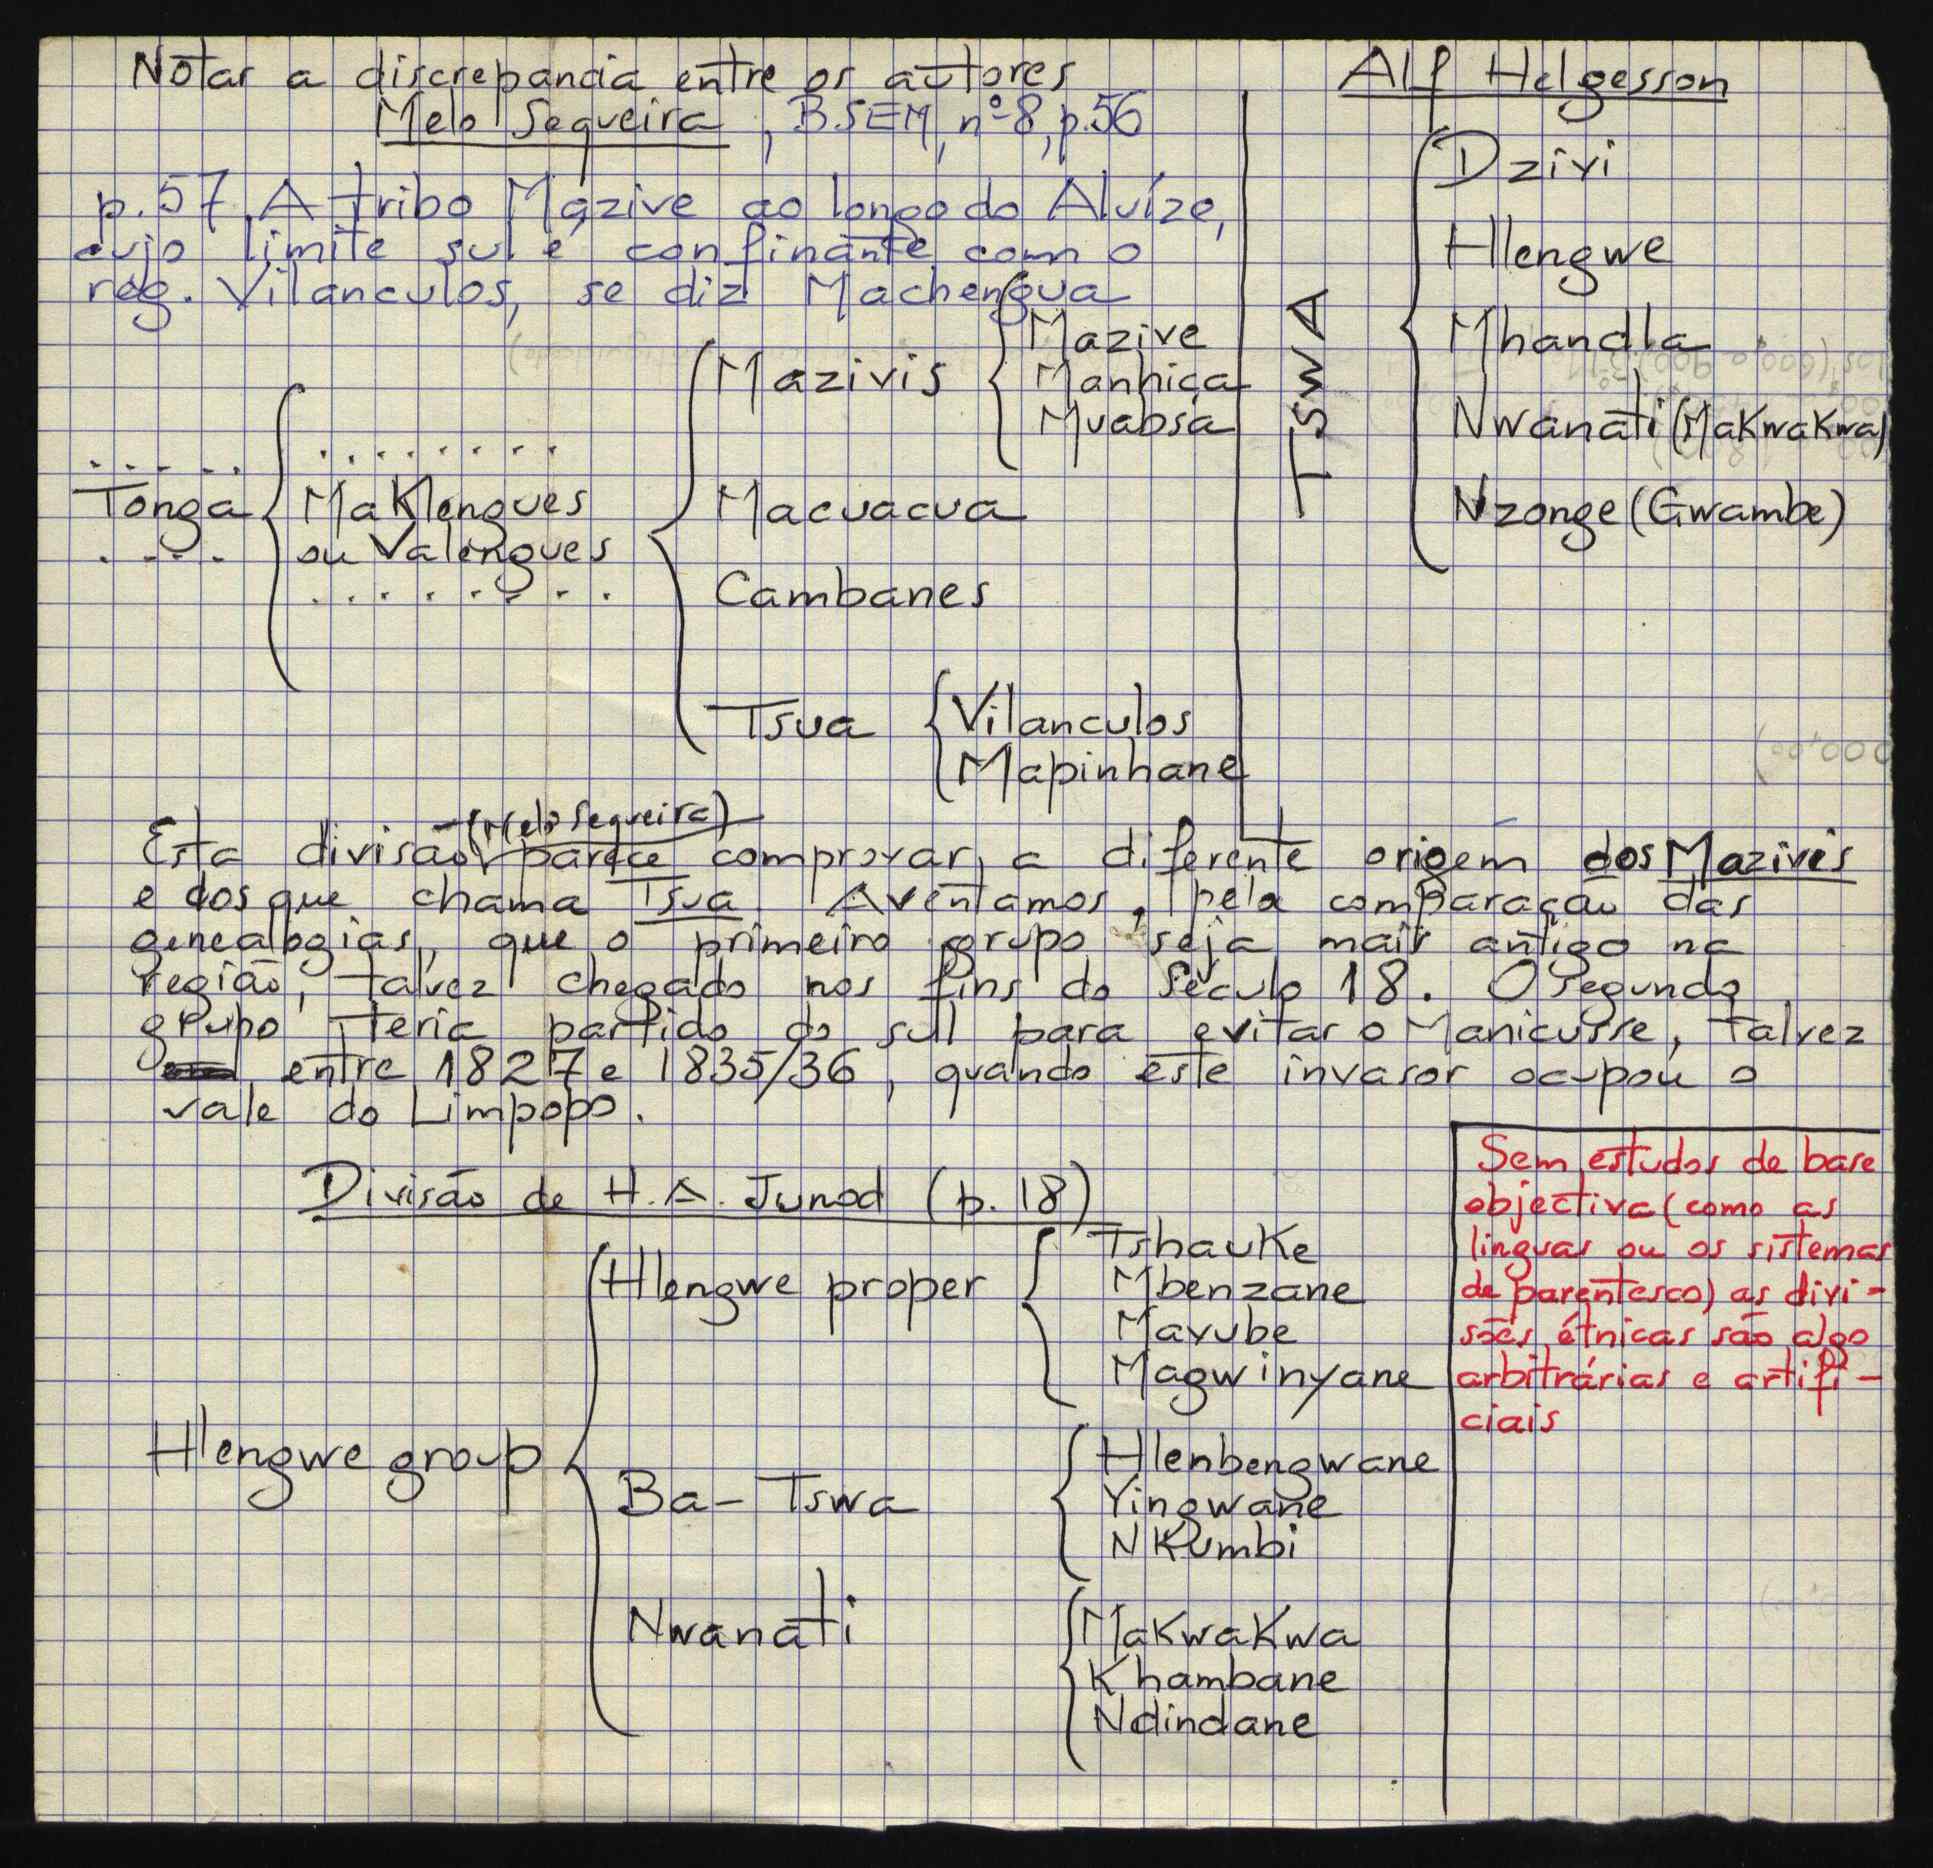 Notar a discrepancia entre os autores
Melo Sequeira, BSEM, nº 8, p. 56
p. 57 A tribo Mazive ao longo do Aluíze,
cujo limite sul é confinante com o
reg. Vilanculos, se diz Machengua
Tonga
MaKlengues
ou Valengues
Mazivis
Mazive
Manhiça
Muabsa
Macuacua
Cambanes
Tsua
Vilanculos
Mapinhane
Alf Helgesson
TSWA
Dzivi
Hlengwe
Mhandla
Nwanati (MaKwaKwa)
Nzonge (Gwambe)
Esta divisão (Melo Sequeira) parece comprovar, a diferente origem dos Mazives
e dos que chama Tsua. Aventamos, pela comparação das
genealogias, que o primeiro grupo seja mais antigo na
região, talvez chegado nos fins do Século 18. O segundo
grupo teria partido do sul para evitar o Manicusse, talvez
entre 1827 e 1835/36, quando este invasor ocupou o
vale do Limpopo.
Divisão de H. A. Junod (p. 18)
Hlengwe group
Hlengwe proper
Tshauke
Mbenzane
Mavube
Magwinyane
Ba-Tswa
Hlenbengwane
Yingwane
NKumbi
Nwanati
MaKwaKwa
Khambane
Ndindane
Sem estudos de base
objectiva (como as
linguas ou os sistemas
de parentesco) as divi-
sões étnicas são algo
arbitrárias e artifi-
ciais